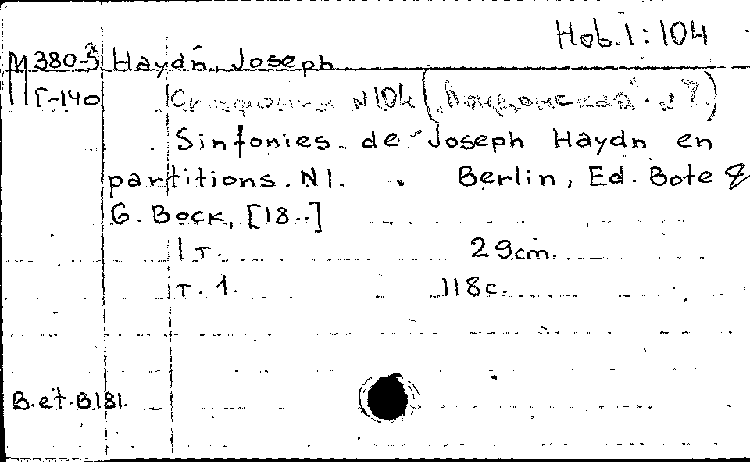 Hob.I:104
M 380-3 Haydn, Joseph
Г-140 Симфония №104 (Лондонская. № 7.)
Sinfonies de Joseph Haydn en
partitions. N1. Berlin, Ed. Bote &
G. Bock, [18..]
1 т. 29cm.
т. 1. 118c.
B. et. B.181.